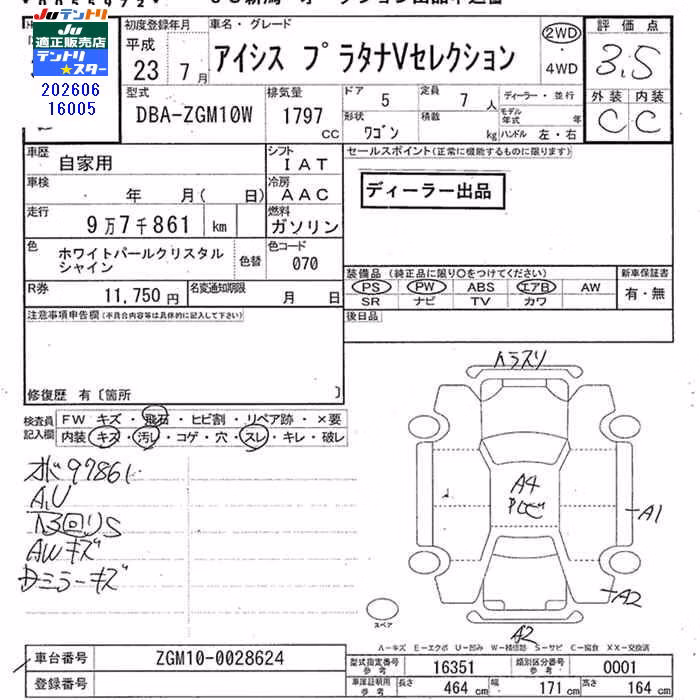 JU テントリ
JU適正販売店
テントリ★スター
202606
16005
初度登録年月
平成
23 7月
車名・グレード
アイシス プラタナVセレクション
2WD
・
4WD
評価点
3.5
外装 内装
C C
型式
DBA-ZGM10W
排気量
1797
CC
ドア
5
定員
7人
ディーラー・並行
形状
ワゴン
積載
kg
モデル年式 年
ハンドル 左・右
車歴
自家用
シフト
IAT
車検
年 月( 日)
冷房
AAC
走行
9万7千861 km
燃料
ガソリン
色
ホワイトパールクリスタル
シャイン
色替
色コード
070
R券
11,750円
名変通知期限
月 日
セールスポイント(正常に機能するものに限ります)
ディーラー出品
装備品(純正品に限り○をつけてください)
PS PW ABS エアB AW
SR ナビ TV カワ
新車保証書
有・無
後日品
注意事項申告欄(不具合内容等は具体的に記入して下さい)
修復歴 有〔箇所 〕
検査員
記入欄
FW キズ・飛石・ヒビ割・リペア跡・×要
内装 キズ・汚レ・コゲ・穴・スレ・キレ・破レ
97861
AWキズ
Dミラーキズ
トラスリ
A4
A1
A2
A2
スペア
A-キズ E-エクボ U-凹み W-補修跡 S-サビ C-腐食 XX-交換済
車台番号
ZGM10-0028624
登録番号
型式指定番号
参考
16351
類別区分番号
参考
0001
車庫証明用
参考
長さ
464 cm
幅
171 cm
高さ
164 cm